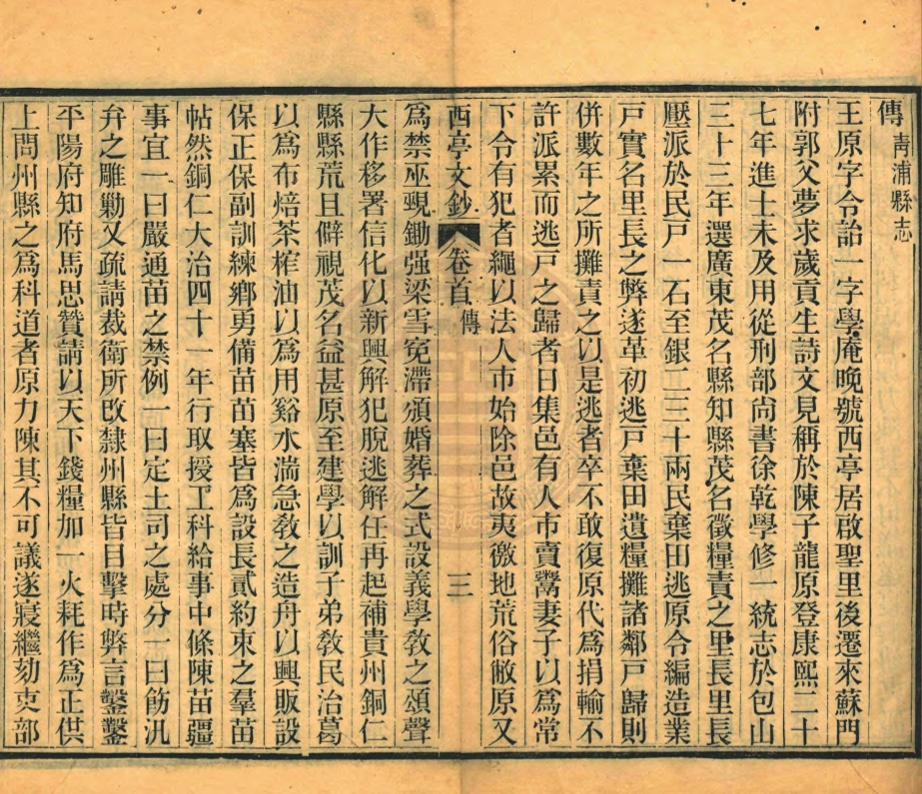 傳 青浦縣志
王原字令詒一字學庵晚號西亭居啟聖里後遷來蘇門
附郭父夢求歲貢生詩文見稱於陳子龍原登康熙二十
七年進士未及用從刑部尚書徐乾學修一統志於包山
三十三年選廣東茂名縣知縣茂名徵糧責之里長里長
壓派於民戶一石至銀二三十兩民棄田逃原令編造業
戶實名里長之弊遂革初逃戶棄田遺糧攤諸鄰戶歸則
併數年之所攤責之以是逃者卒不敢復原代為捐輸不
許派累而逃戶之歸者日集邑有人市賣鬻妻子以為常
下令有犯者繩以法人市始除邑故夷徼地荒俗敝原又
西亭文鈔 卷首 傳 三
為禁巫覡鋤强梁雪寃滯頒婚葬之式設義學教之頌聲
大作移署信化以新興解犯脫逃解任再起補貴州銅仁
縣縣荒且僻視茂名益甚原至建學以訓子弟教民治葛
以為布焙茶榨油以為用谿水湍急教之造舟以興販設
保正保副訓練鄉勇備苗苗塞皆為設長貳約束之羣苗
帖然銅仁大治四十一年行取授工科給事中條陳苗疆
事宜一曰嚴通苗之禁例一曰定土司之處分一曰飭汎
弁之雕勦又疏請裁衛所改隸州縣皆目擊時弊言鑿鑿
平陽府知府馬思贊請以天下錢糧加一火耗作為正供
上問州縣之為科道者原力陳其不可議遂寢繼劾吏部